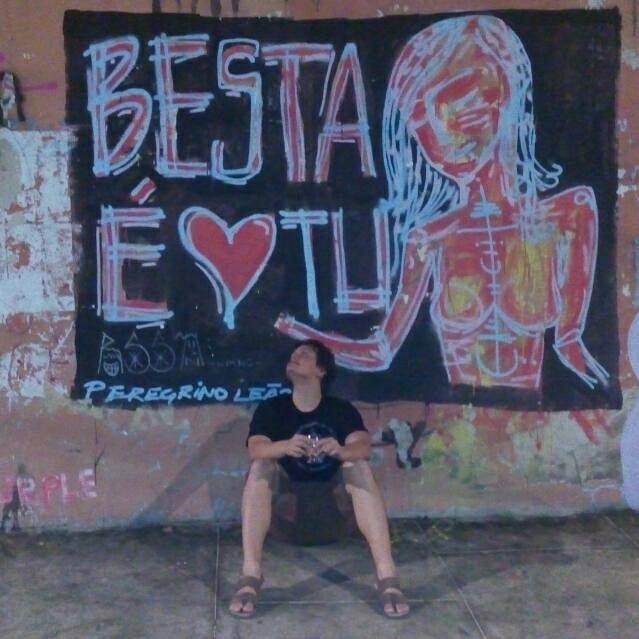 BESTA
É ♥ TU
PEREGRINO LEÃO
URPLE